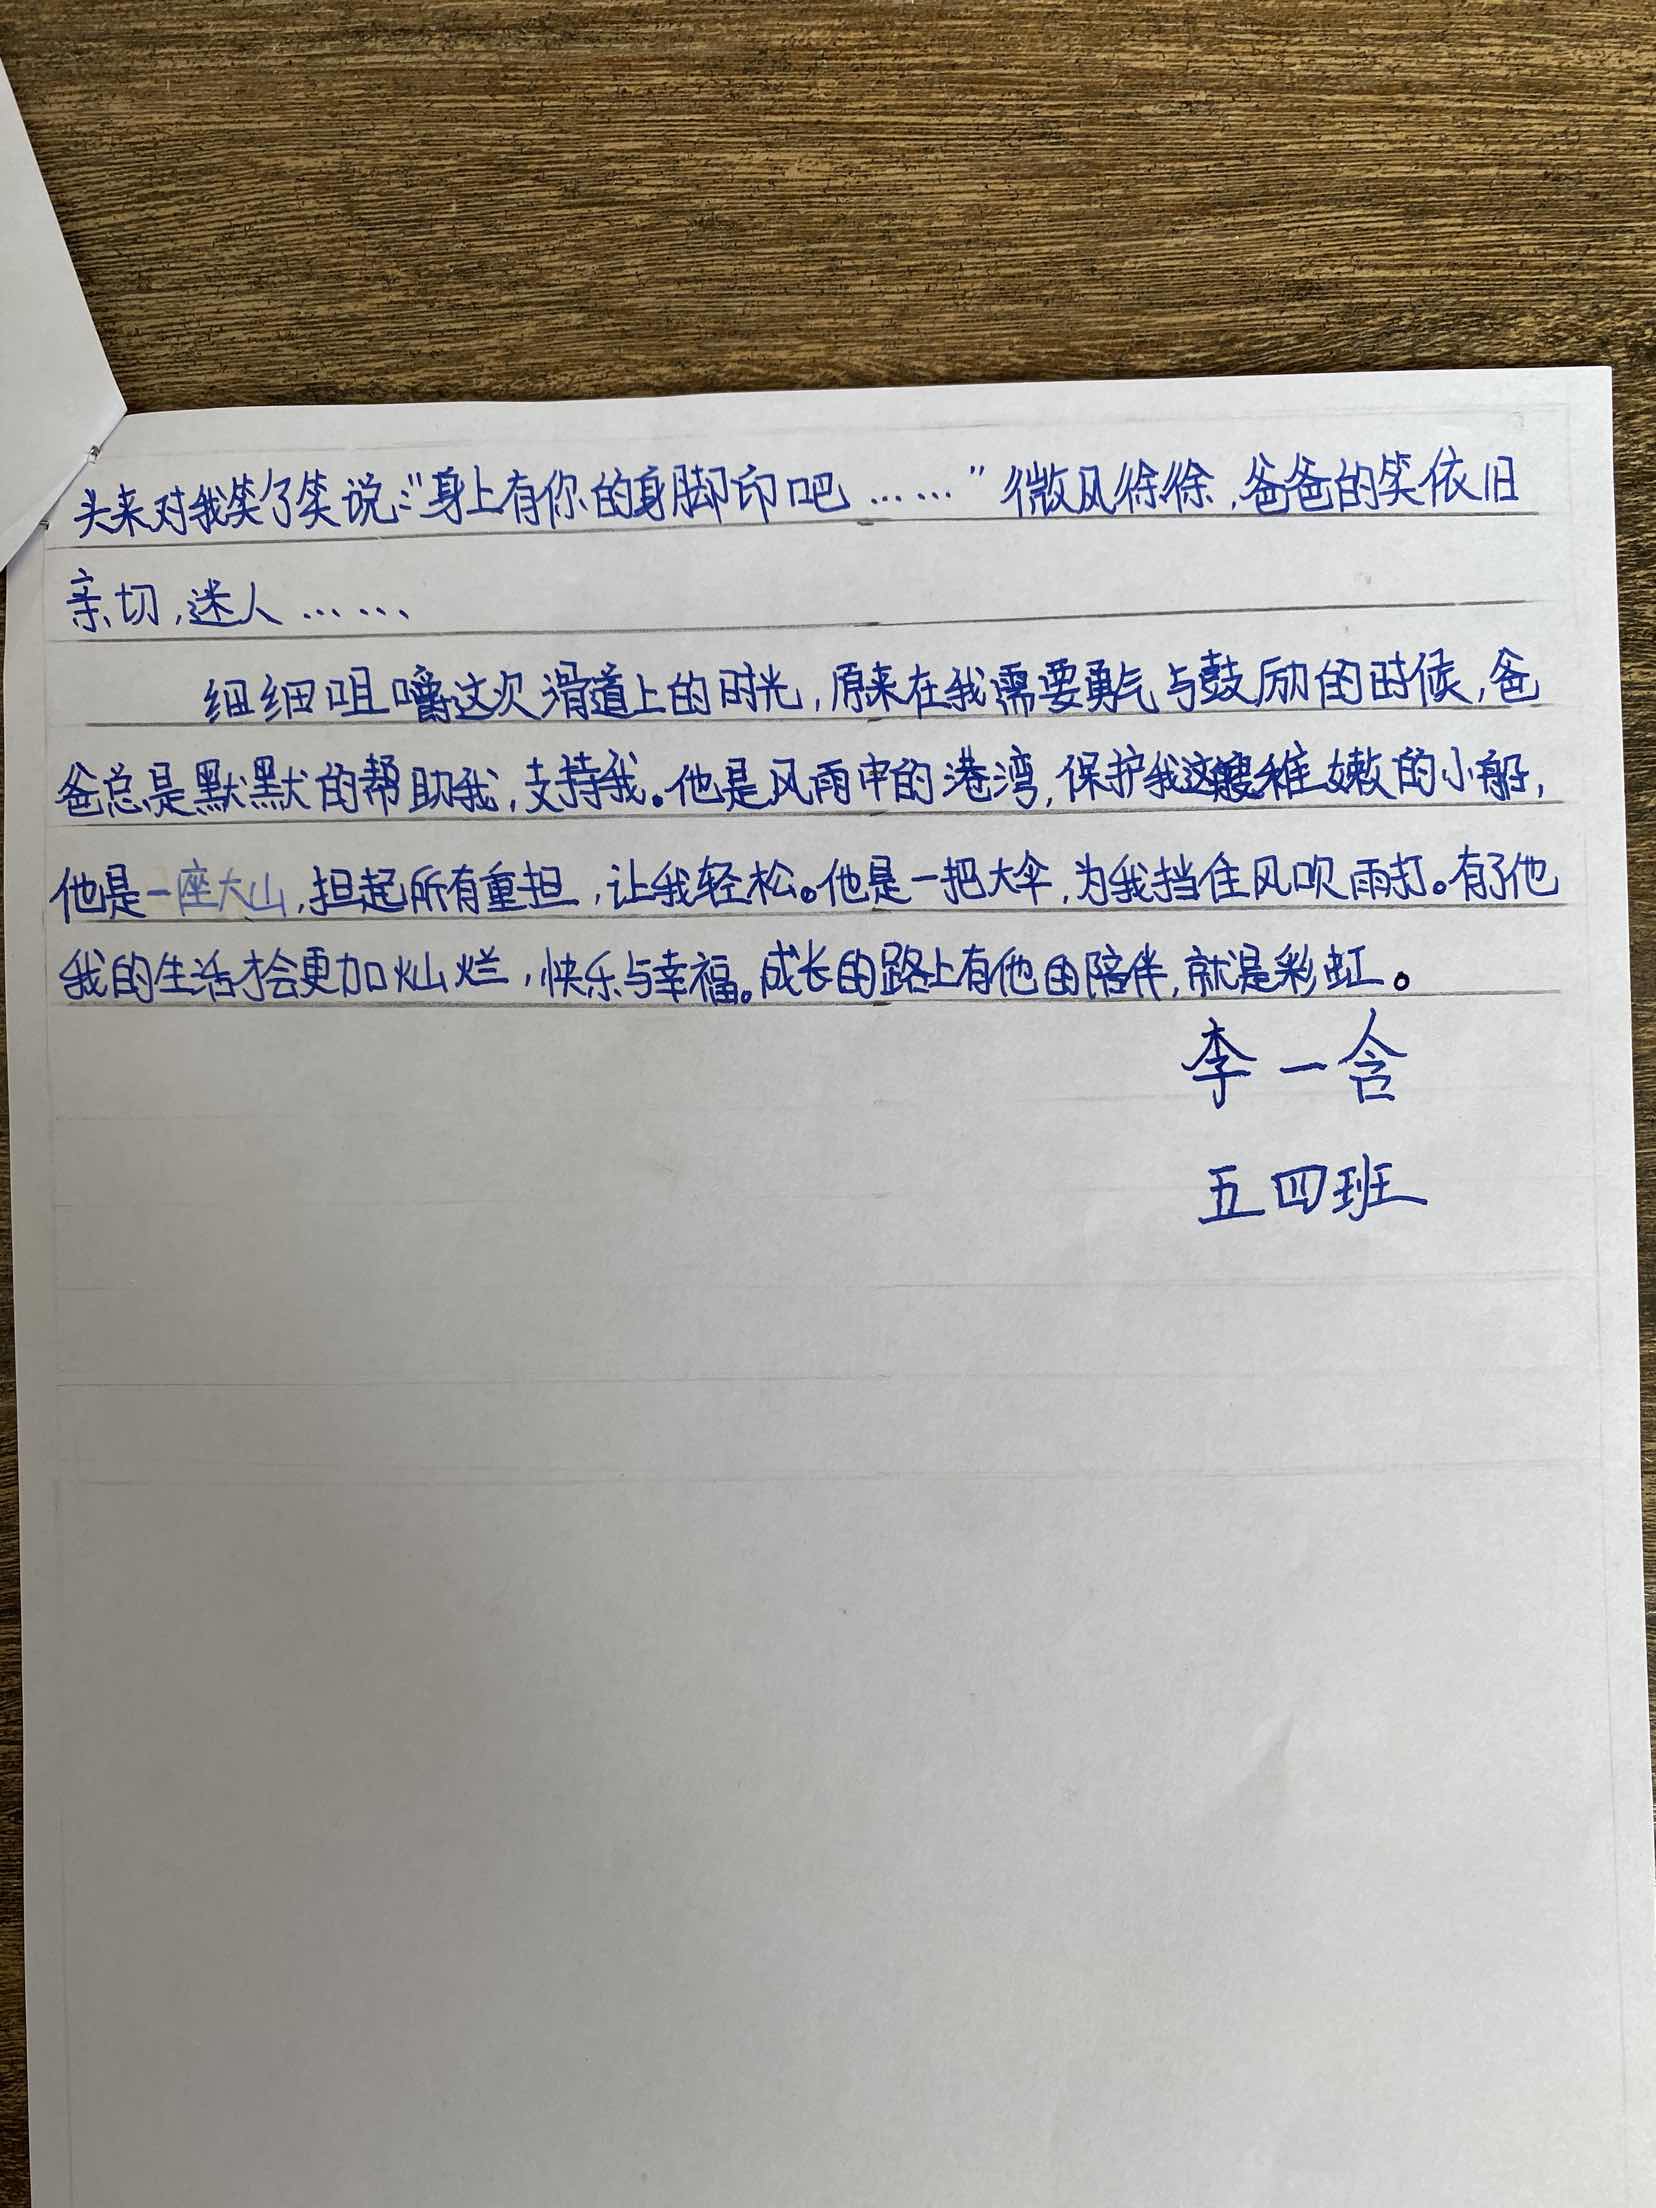 头来对我笑了笑说:"身上有你的身脚印吧……"微风徐徐,爸爸的笑依旧
亲切,迷人……
细细咀嚼这次滑道上的时光,原来在我需要勇气与鼓励的时候,爸
爸总是默默的帮助我,支持我。他是风雨中的港湾,保护我这艘稚嫩的小船,
他是一座大山,担起所有重担,让我轻松。他是一把大伞,为我挡住风吹雨打。有了他
我的生活才会更加灿烂,快乐与幸福。成长的路上有他的陪伴,就是彩虹。
李一含
五四班